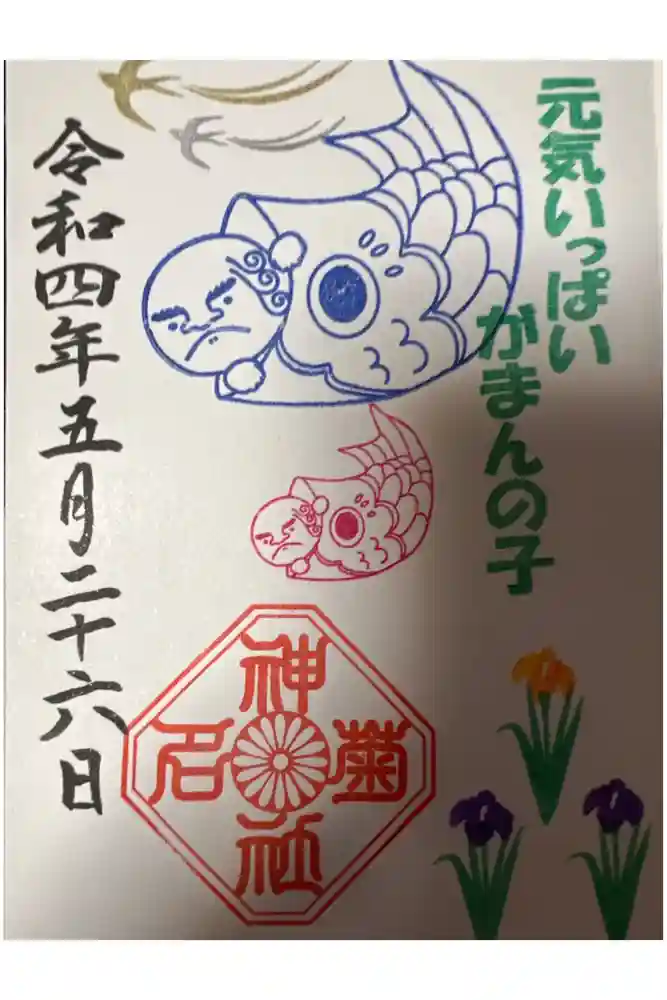 元気いっぱい
がまんの子
菊名神社
令和四年五月二十六日